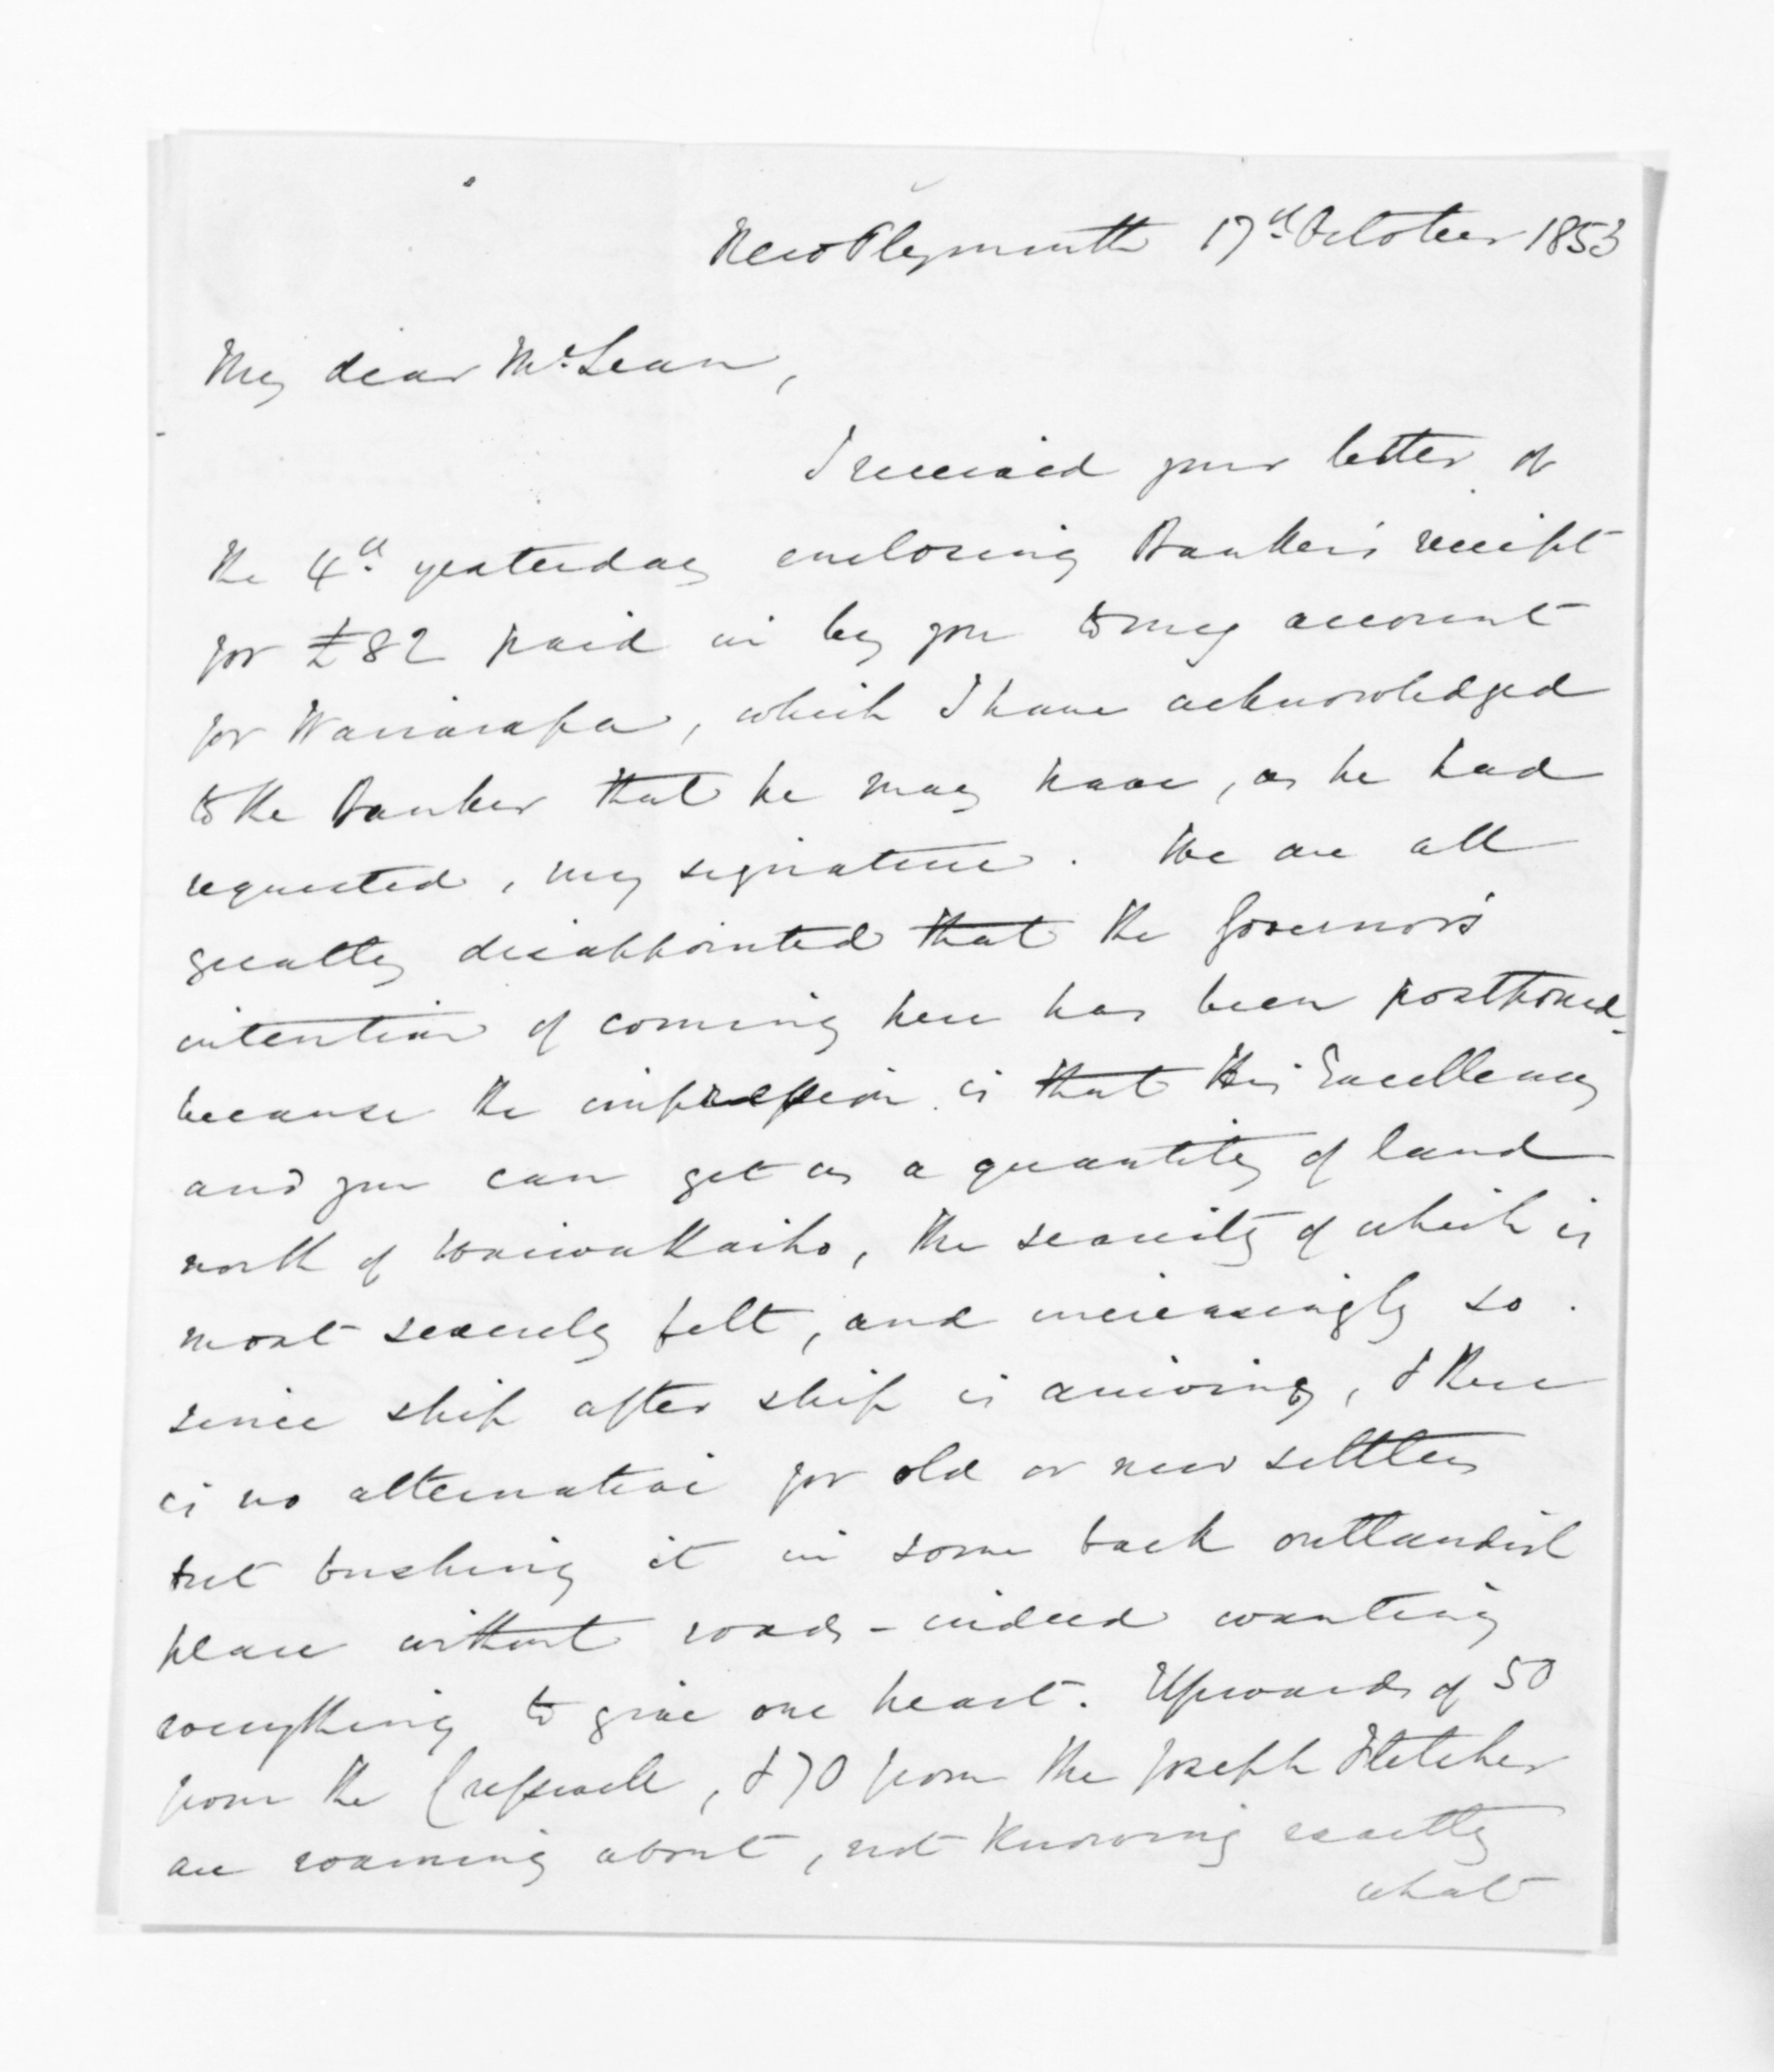 New Plymouth 17th October 1853
My dear McLean,
I received your letter of
the 4th yesterday enclosing Banker's receipt
for £82 paid in by you to my account
for Wairarapa, which I have acknowledged
to the Banker that he may have, as he had
requested, my signature. We are all
greatly disappointed that the Governor's
intention of coming here has been postponed -
because the impression is that His Excellency
and you can get us a quantity of land
north of Waiwakaiho, the scarcity of which is
most severely felt, and increasingly so.
since ship after ship is arriving, & there
is no alternative for old or new settlers
but bushing it in some back outlandish
place without roads - indeed wanting
everything to give one heart. Upwards of 50
from the Cresswell, & 70 from the Joseph Fletcher
are roaming about, not knowing exactly
what